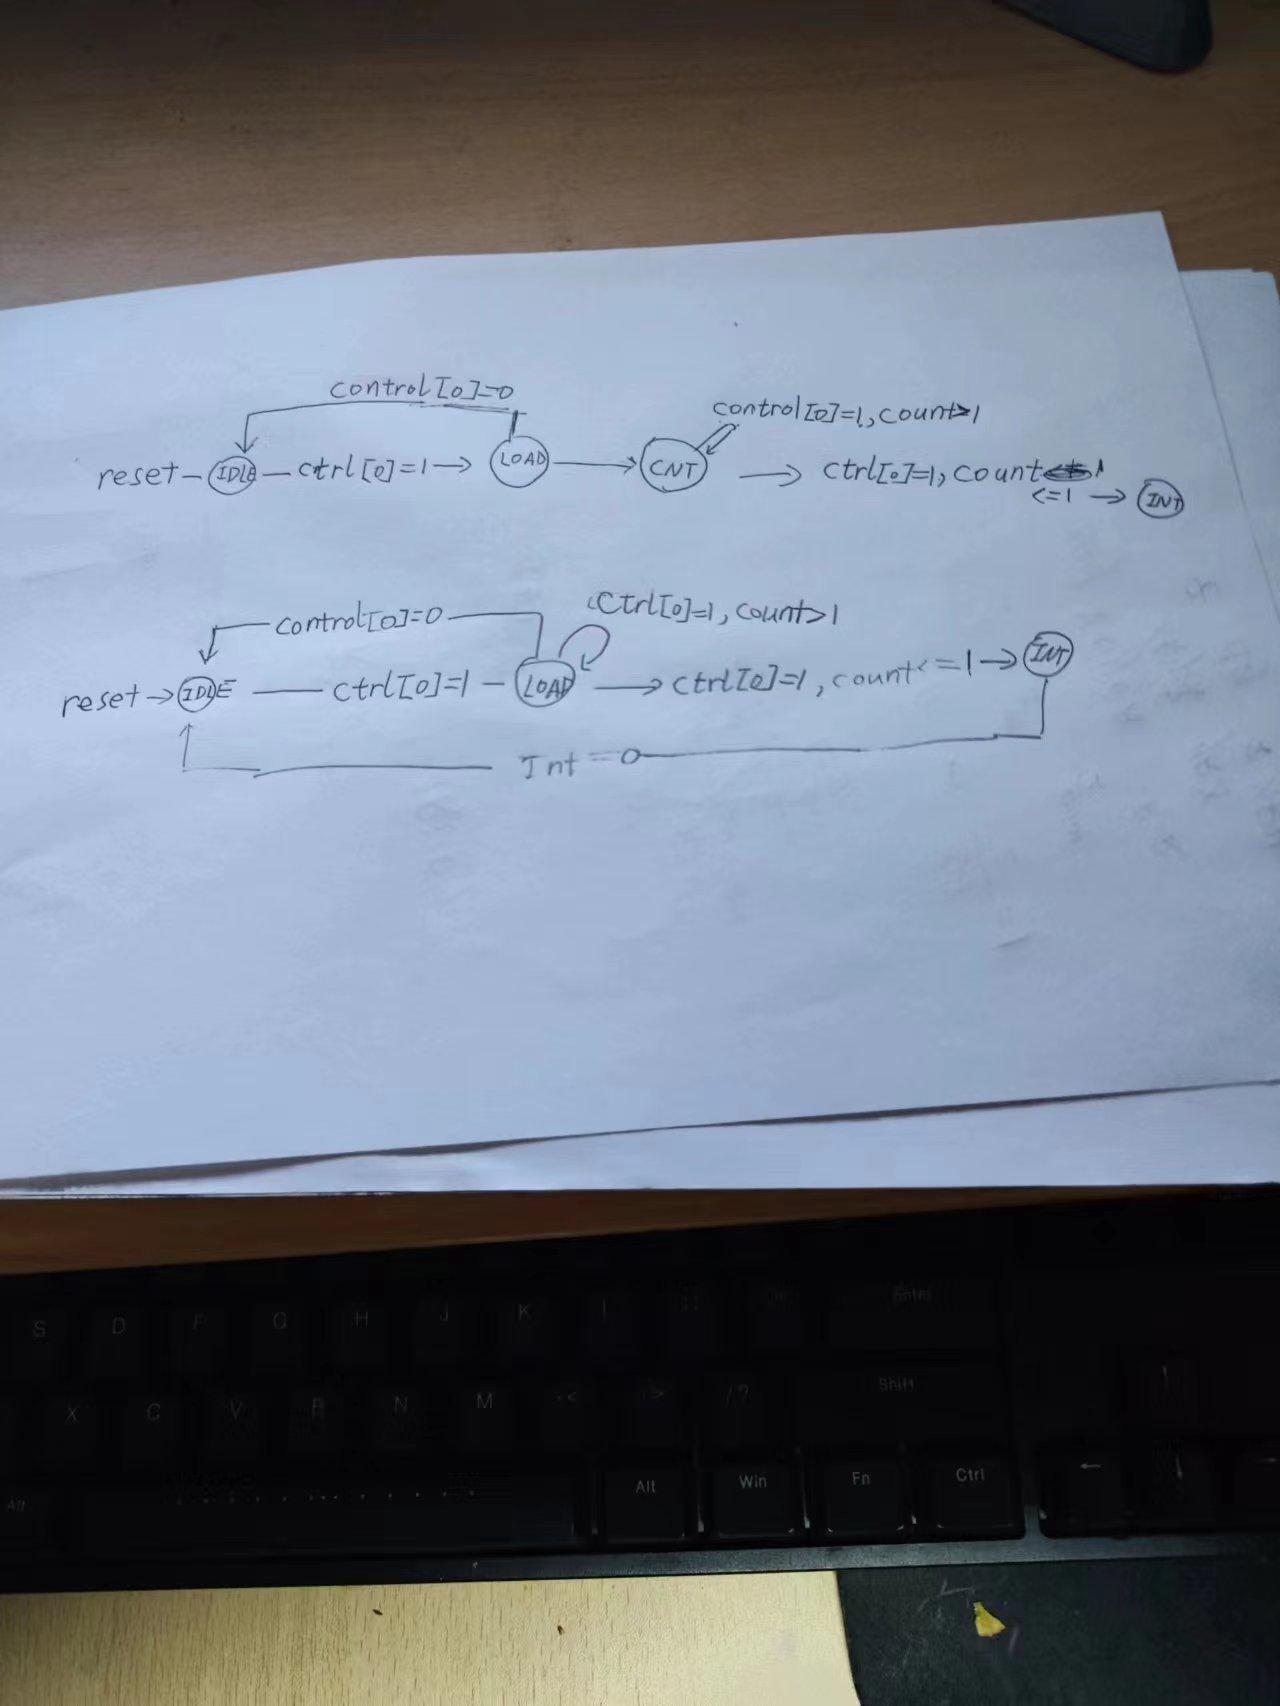 control[0]=0
control[0]=1, count>1
reset - IDLE - ctrl[0]=1 → LOAD → CNT → ctrl[0]=1, count 1
<=1 → INT
control[0]=0
Ctrl[0]=1, count>1
reset → IDLE - ctrl[0]=1 - LOAD → ctrl[0]=1, count<=1 → INT
Int=0
S D F G H J K Enter
X C V B N M < > / ? Shift
Alt Alt Win Fn Ctrl ← ↓ →